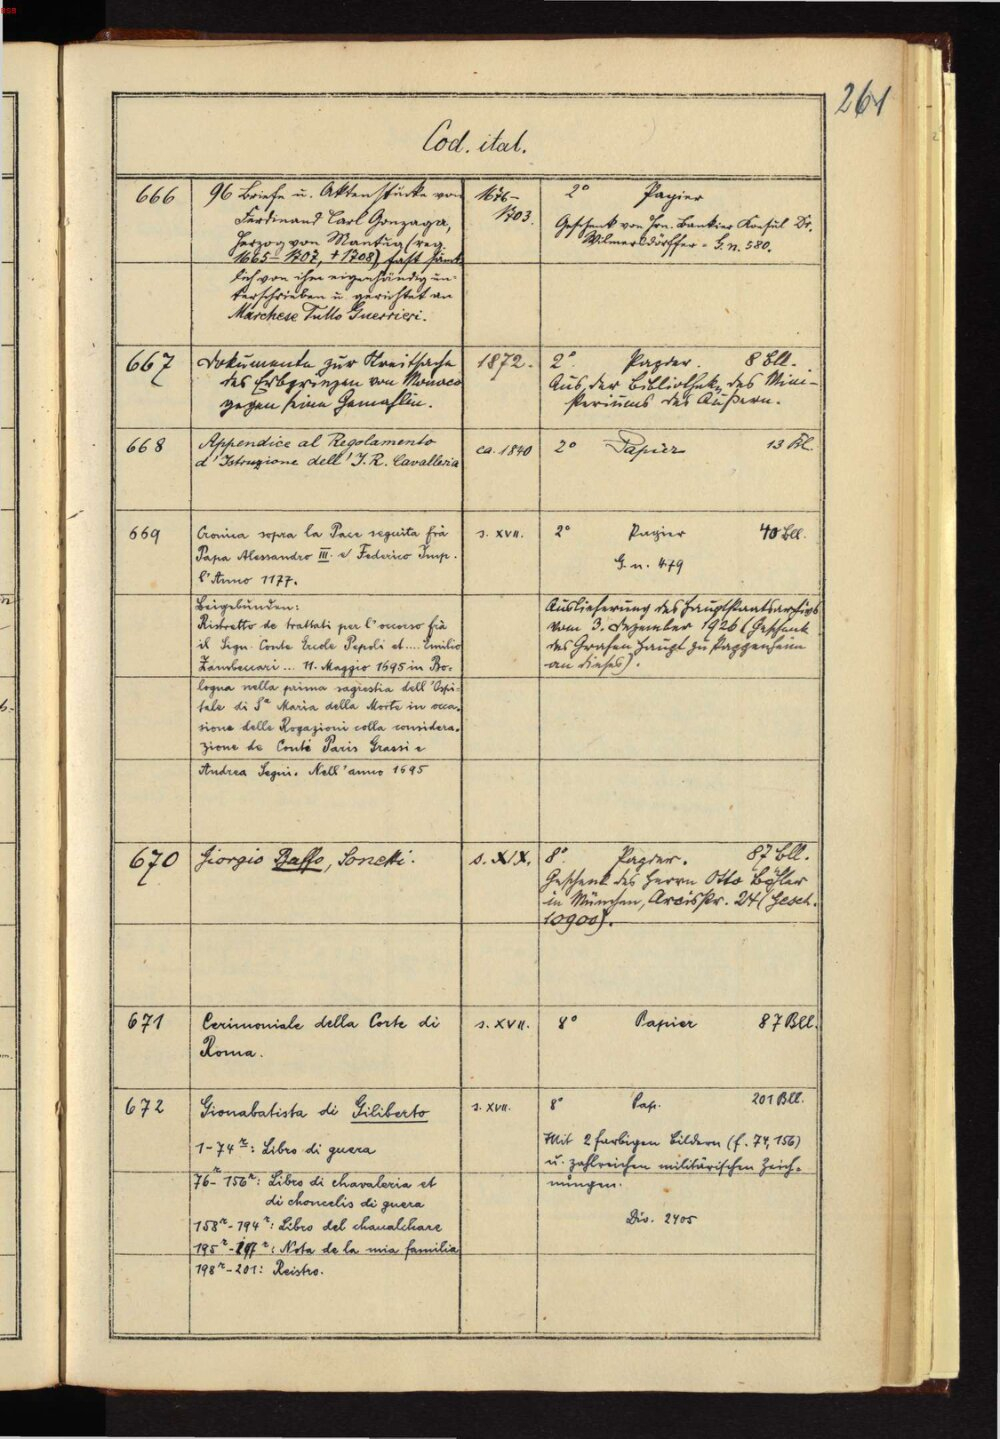 261
Cod. ital.
666
96 Briefe u. Aktenstücke von
Ferdinand Carl Gonzaga,
Herzog von Mantua (reg.
1665–1707, †1708), fast sämt-
lich von ihm eigenhändig un-
terschrieben u. gerichtet an
Marchese Tullo Guerrieri.
1676–
1703.
2° Papier
Geschenk von Hrn. Bankier Konsul Dr.
Wilmersdörffer – G. n. 580.
667
Dokumente zur Streitsache
des Erbprinzen von Monaco
gegen seine Gemahlin.
1872.
2° Papier. 8 Bll.
Aus der Bibliothek des Mini-
steriums des Äußern.
668
Appendice al Regolamento
d'Istruzione dell' I. R. Cavalleria
ca. 1840
2° Papier 13 Bl.
669
Cronica sopra la Pace seguita frà
Papa Alessandro III. e Federico Imp.
l'Anno 1177.
s. XVII.
2° Papier 40 Bll.
G. n. 479
Beigebunden:
Ristretto de trattati per l'occorso frà
il Sign. Conte Ercole Pepoli et .... Emilio
Zambeccari ... 11. Maggio 1695 in Bo-
logna nella prima sagrestia dell' Ospi-
tale di Sᵃ Maria della Morte in occa-
sione delle Rogazioni colla considera-
zione de Conte Paris Grassi e
Andrea Segni. Nell' anno 1695
Auslieferung des Hauptstaatsarchivs
vom 3. Dezember 1926 (Geschenk
des Grafen Haupt zu Pappenheim
an dieses).
670
Giorgio Baffo, Sonetti.
s. XIX.
8° Papier. 87 Bll.
Geschenk des Herrn Otto Böhler
in München, Arcisstr. 24 (Gesch.
10900).
671
Cerimoniale della Corte di
Roma.
s. XVII.
8° Papier 87 Bll.
672
Gionabatista di Giliberto
s. XVII.
8° Pap. 201 Bll.
1–74ʳ: Libro di guera
76ʳ–156ʳ: Libro di chavaleria et
di choncelis di guera
158ʳ–194ʳ: Libro del chaualchare
195ʳ–197ʳ: Nota de la mia familia
198ʳ–201: Reistro.
Mit 2 farbigen Bildern (f. 74, 156)
u. zahlreichen militärischen Zeich-
nungen.
Div. 2405